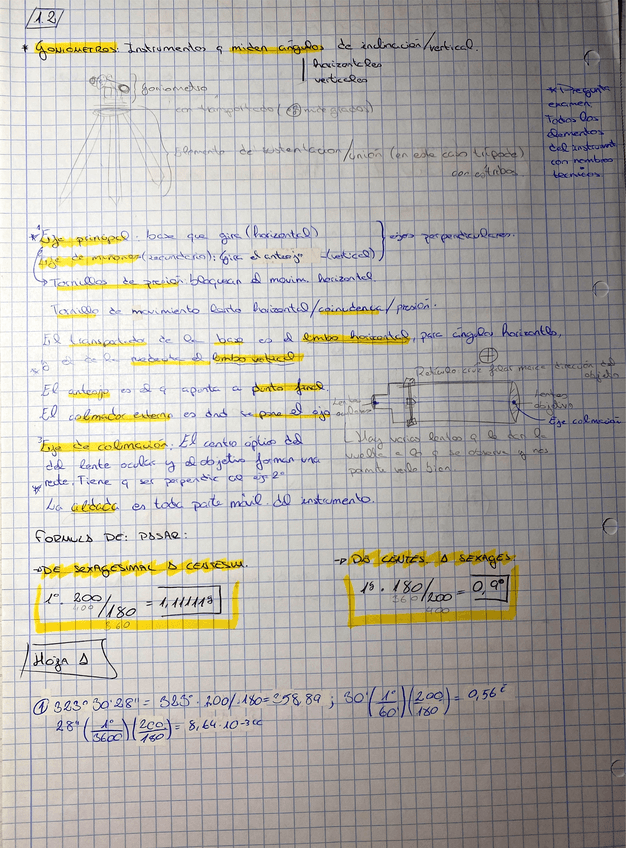 1.2
* GONIOMETROS: Instrumentos q miden ángulos de inclinación/vertical.
horizontales
verticales
goniometro
con transportado ( integrados)
Elemento de sustentación/unión (en este caso trípode)
con estribos
** Pregunta
examen:
Todos los
elementos
del instrument
con nombres
tecnicos
* Eje principal: base que gira (horizontal)
Eje de muñones (secundario): gira el anteojo (vertical)
ejes perpendiculares.
→ Tornillos de presión: bloquean el movim. horizontal.
Tornillo de movimiento lento horizontal/coincidencia/presión.
El transportado de la base es el limbo horizontal, para ángulos horizontles,
y el de la es el limbo vertical
El anteojo es el q apunta a punto final
El colimador externo es dnd se pone el ojo
Retículo cruz filar marca dirección del
objetivo
Lentes
ocular
Lentes
objetivo
Eje colimación
3 Eje de colimación: El centro óptico del
del lente ocular y el objetivo forman una
recta. Tiene q ser perpendic al eje 2º
Hay varias lentes q le dan la
vuelta a lo q se observa y nos
permite verlo bien.
La alidada es toda parte móvil del instrumento.
FORMULA DE: PASAR:
→ DE SEXAGESIMAL A CENTESIM.
→ DO CENTES. A SEXAGES.
1º · 200/180 = 1,11111g
400
360
1g · 180/200 = 0,9º
360
400
Hoja 1
① 323º 30' 28" = 323º · 200/180 = 358,89 ; 30' (1º/60)(200/180) = 0,56c
28" (1º/3600)(200/180) = 8,64·10-3cc